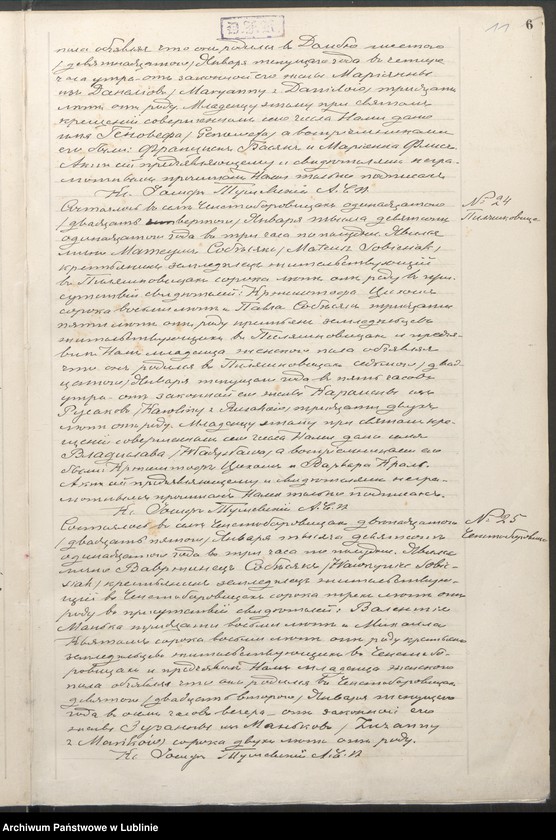 11 6
пола объявляя что онъ родился въ Домбю шестого
/девятнадцатого/ Января текущаго года въ четыре
часа утра отъ законной его жены Маріанны
изъ Даниловъ /Maryanny z Daniłów/ тридцати
лѣтъ отъ роду. Младенцу этому при святомъ
крещеніи совершенномъ сего числа Нами дано
имя Геновефа /Genowefa/ а воспріемниками
его были: Францишекъ и Маріанна
Актъ сей предъявляющему и свидѣтелямъ негра-
мотнымъ прочитанъ Нами только подписанъ
Кс. А.С.П.
№ 24
Состоялось въ селѣ Ченстоборовицахъ одинадцатого
/двадцать четвертого/ Января тысяча девятьсотъ
одинадцатого года въ три часа по полудни. Явился
лично Матеушъ Собѣсякъ /Mateusz Sobiesiak/
крестьянинъ земледѣлецъ жительствующій
въ сорока лѣтъ отъ роду въ при-
сутствіи свидѣтелей: Криштофа
сорока восьми лѣтъ и Павла Собѣсяка тридцати
пяти лѣтъ отъ роду крестьянъ земледѣльцевъ
жительствующихъ въ и предъя-
вилъ Намъ младенца женского пола объявляя
что онъ родился въ седьмого /двад-
цатого/ Января текущаго года въ пять часовъ
утра отъ законной его жены Каролины изъ
Русаковъ /Karoliny z Rusaków/ тридцати двухъ
лѣтъ отъ роду. Младенцу этому при святомъ кре-
щеніи совершенномъ сего числа Нами дано имя
Владислава /Władysława/, а воспріемниками его
были: Криштофъ и Варвара Кроль.
Актъ сей предъявляющему и свидѣтелямъ негра-
мотнымъ прочитанъ Нами только подписанъ.
Кс. А.С.П.
№ 25
Ченстоборовице
Состоялось въ селѣ Ченстоборовицахъ двѣнадцатого
/двадцать пятого/ Января тысяча девятьсотъ
одинадцатого года въ три часа по полудни. Явился
лично Вавржинецъ Собѣсякъ /Wawrzyniec Sobie-
siak/ крестьянинъ земледѣлецъ жительствую-
щій въ Ченстоборовицахъ сорока трехъ лѣтъ отъ
роду въ присутствіи свидѣтелей: Валентія
Манька тридцати восьми лѣтъ и Михаила
сорока восьми лѣтъ отъ роду крестьянъ
земледѣльцевъ жительствующихъ въ Ченстобо-
ровицахъ и предъявилъ Намъ младенца женского
пола объявляя что онъ родился въ Ченстоборовицахъ
девятого /двадцать второго/ Января текущаго
года въ часовъ вечера отъ законной его
жены Зузанны изъ Маньковъ /Zuzanny
z Mańków/ сорока двухъ лѣтъ отъ роду.
Кс. А.С.П.
Archiwum Państwowe w Lublinie